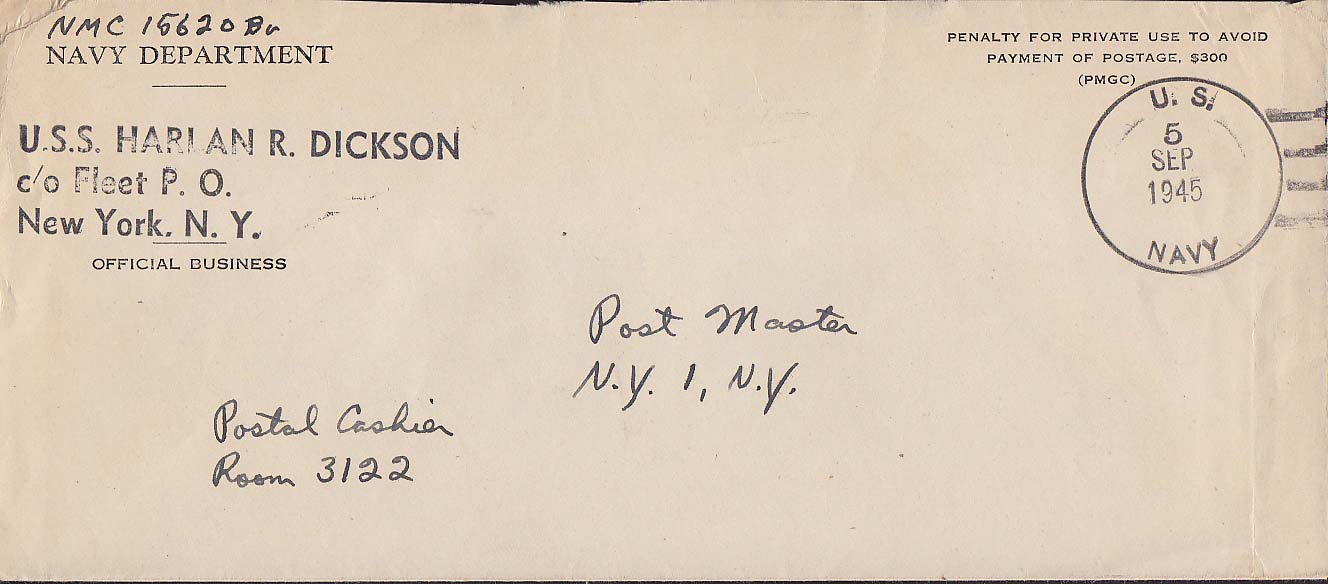 NMC 15620 Br
NAVY DEPARTMENT
U.S.S. HARLAN R. DICKSON
c/o Fleet P. O.
New York. N. Y.
OFFICIAL BUSINESS
PENALTY FOR PRIVATE USE TO AVOID
PAYMENT OF POSTAGE, $300
(PMGC)
U. S.
5
SEP
1945
NAVY
Post Master
N.Y. 1, N.Y.
Postal Cashier
Room 3122